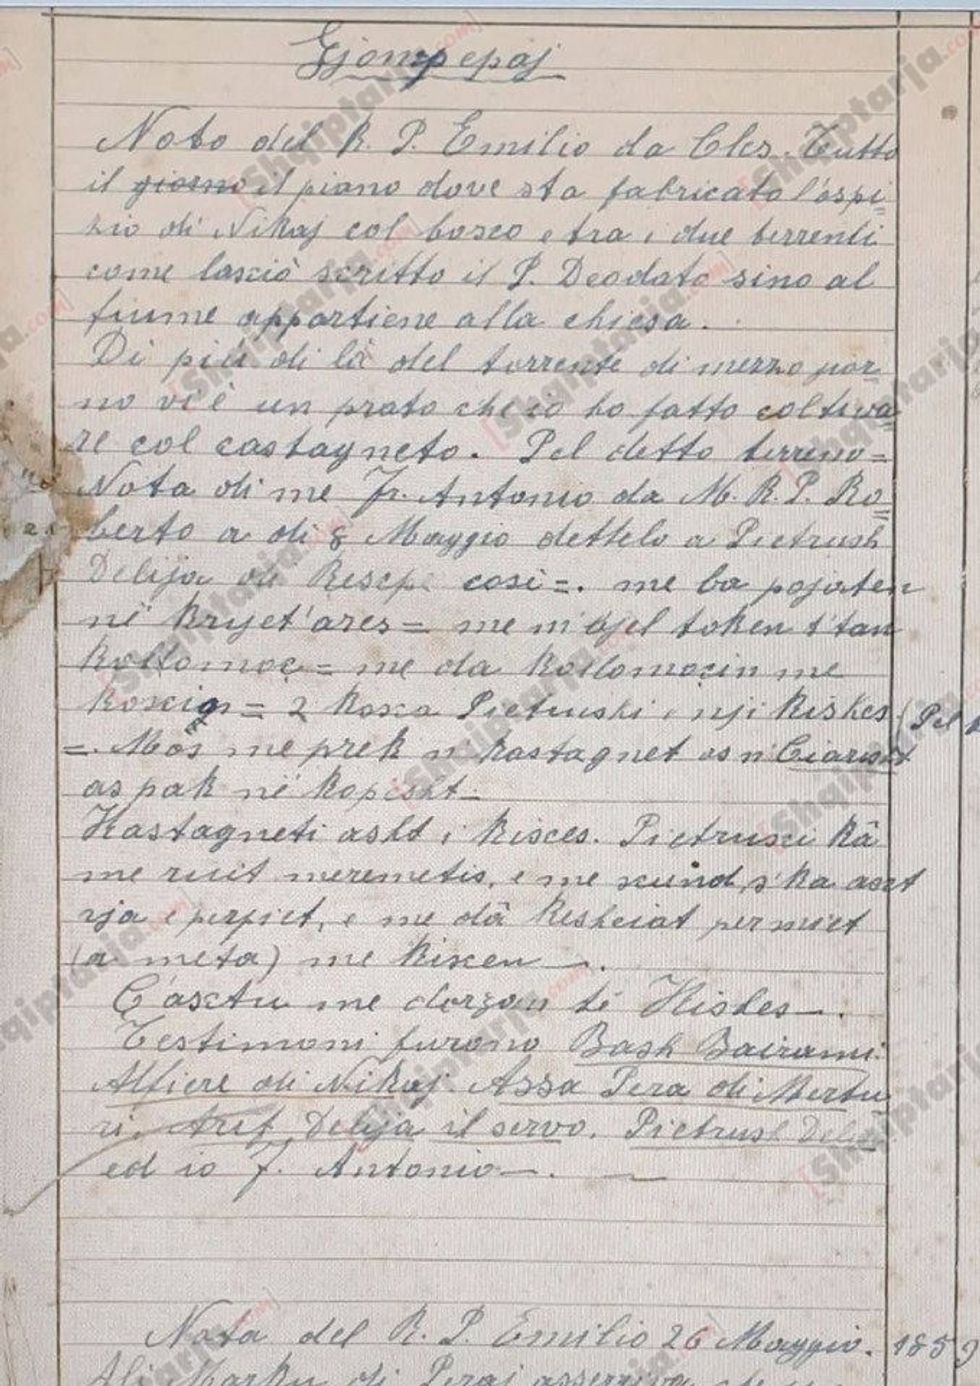 Gjonpepaj
Noto del R. P. Emilio da Cles. Tutto
il giorno il piano dove sta fabricato l'ospi=
zio di Nikaj col bosco e tra i due torrenti
come lasciò scritto il P. Deodato sino al
fiume appartiene alla chiesa.
Di più di là del torrente di mezzo
no vi è un prato che io ho fatto coltiva=
re col castagneto. Pel detto terreno=
Nota di me Fr. Antonio da M. R. P. Ro=
berto a di 8 Maggio dettelo a Pietrush
Delija di cosi =. me ba pojaten
në kryet'ares = me m'bjel token t'tan
= me da me
= 2 Koxa Pietrushi i nji Kishes (Pel
=. Mos me prek n kastagnet as n'
as pak në kopesht=
Kastagneti asht i kisces. Pietrusci kâ
me ruit meremetis, e me
e me dâ
(a meta) me kiscen —.
me dorzon të Kishes —.
Testimoni furono Bash Bairami
Alfiere di Nikaj. Assa Pera di Mertu
ri. Aref Delija il servo. Pietrush Delija
ed io F. Antonio —.
Nota del R. P. Emilio 26 Maggio. 1859
di Peraj